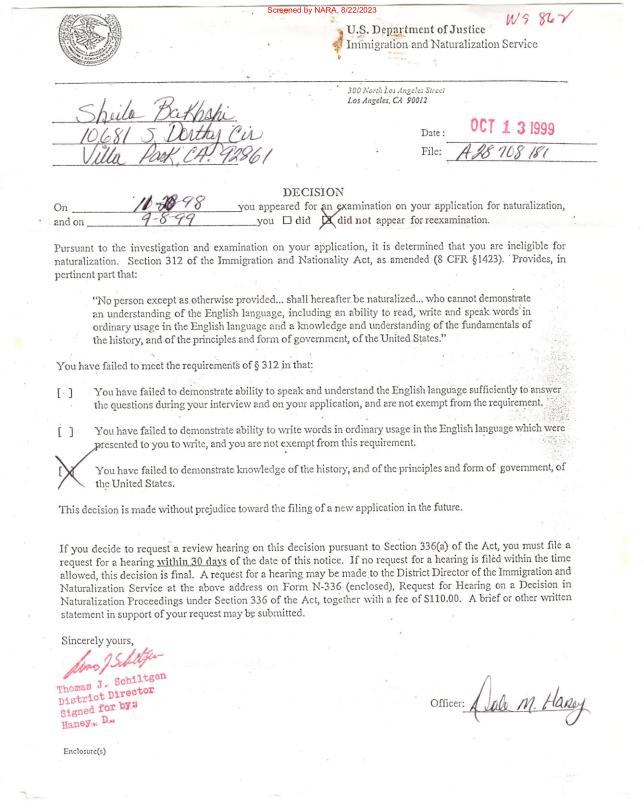 Screened by NARA, 8/22/2023
WS 862
U.S. Department of Justice
Immigration and Naturalization Service
300 North Los Angeles Street
Los Angeles, CA 90012
Sheila Bakhshi
10681 S Dorthy Cir
Villa Park, CA. 92861
Date: OCT 13 1999
File: A28 708 181
DECISION
On 11-28-98 you appeared for an examination on your application for naturalization,
and on 9-8-99 you ☐ did ☒ did not appear for reexamination.
Pursuant to the investigation and examination on your application, it is determined that you are ineligible for
naturalization. Section 312 of the Immigration and Nationality Act, as amended (8 CFR §1423). Provides, in
pertinent part that:
“No person except as otherwise provided... shall hereafter be naturalized... who cannot demonstrate
an understanding of the English language, including an ability to read, write and speak words in
ordinary usage in the English language and a knowledge and understanding of the fundamentals of
the history, and of the principles and form of government, of the United States.”
You have failed to meet the requirements of § 312 in that:
[ ] You have failed to demonstrate ability to speak and understand the English language sufficiently to answer
the questions during your interview and on your application, and are not exempt from the requirement.
[ ] You have failed to demonstrate ability to write words in ordinary usage in the English language which were
presented to you to write, and you are not exempt from this requirement.
[X] You have failed to demonstrate knowledge of the history, and of the principles and form of government, of
the United States.
This decision is made without prejudice toward the filing of a new application in the future.
If you decide to request a review hearing on this decision pursuant to Section 336(a) of the Act, you must file a
request for a hearing within 30 days of the date of this notice. If no request for a hearing is filed within the time
allowed, this decision is final. A request for a hearing may be made to the District Director of the Immigration and
Naturalization Service at the above address on Form N-336 (enclosed), Request for Hearing on a Decision in
Naturalization Proceedings under Section 336 of the Act, together with a fee of $110.00. A brief or other written
statement in support of your request may be submitted.
Sincerely yours,
Thomas J. Schiltgen
Thomas J. Schiltgen
District Director
Signed for by:
Haney, D.
Officer: Dale M. Haney
Enclosure(s)